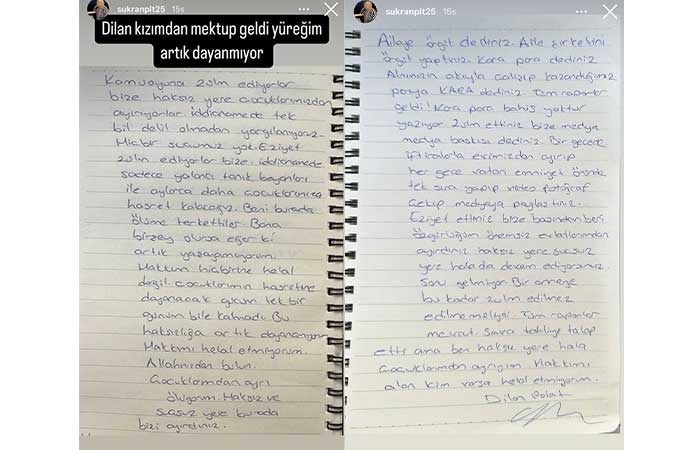 sukranplt25 15s
Dilan kızımdan mektup geldi yüreğim
artık dayanmıyor
Kamuoyuna zulm ediyorlar
bize haksız yere çocuklarımızdan
ayırıyorlar iddianamede tek
bil delil olmadan yargılanıyoruz.
Hiçbir suçumuz yok. Eziyet
zulm ediyorlar bize. iddianamede
sadece yalancı tanık beyanları
ile aylarca daha çocuklarımıza
hasret kalacağız. Beni burada
ölüme terkettiler. Bana
birşey olursa eğer ki
artık yaşayamıyorum.
Hakkım hiçbirine helal
değil. çocuklarımın hasretine
dayanacak gücüm tek bir
günüm bile kalmadı. Bu
haksızlığa artık dayanamıyorum
Hakkımı helal etmiyorum.
Allahınızdan bulun.
Çocuklarımdan ayrı
ölüyorum. Haksız ve
suçsuz yere burada
bizi ayırdınız.
sukranplt25 15s
Aileye örgüt dediniz. Aile şirketini
örgüt yaptınız. Kara para dediniz
Alnımızın akıyla çalışıp kazandığımız
paraya KARA dediniz. Tüm raporlar
geldi! Kara para bahis yoktur
yazıyor zulm ettiniz bize medya
medya baskısı dediniz. Bir gecede
iftiralarla evimizden ayırıp
her gece vatan emniyet önünde
tek sıra yapıp video fotoğraf
çekip medyaya paylaştınız.
Eziyet ettiniz bize başından beri
özgürlüğüm önemsiz evlatlarımdan
ayırdınız haksız yere suçsuz
yere hala da devam ediyorsunuz.
sonu gelmiyor. Bir anneye
bu kadar zulm edilmez
edilmemeliydi Tüm raporlar
mevcut. Savcı tahliye talep
etti ama ben haksız yere hala
çocuklarımdan ayrıyım. Hakkımı
alan kim varsa helal etmiyorum.
Dilan Polat